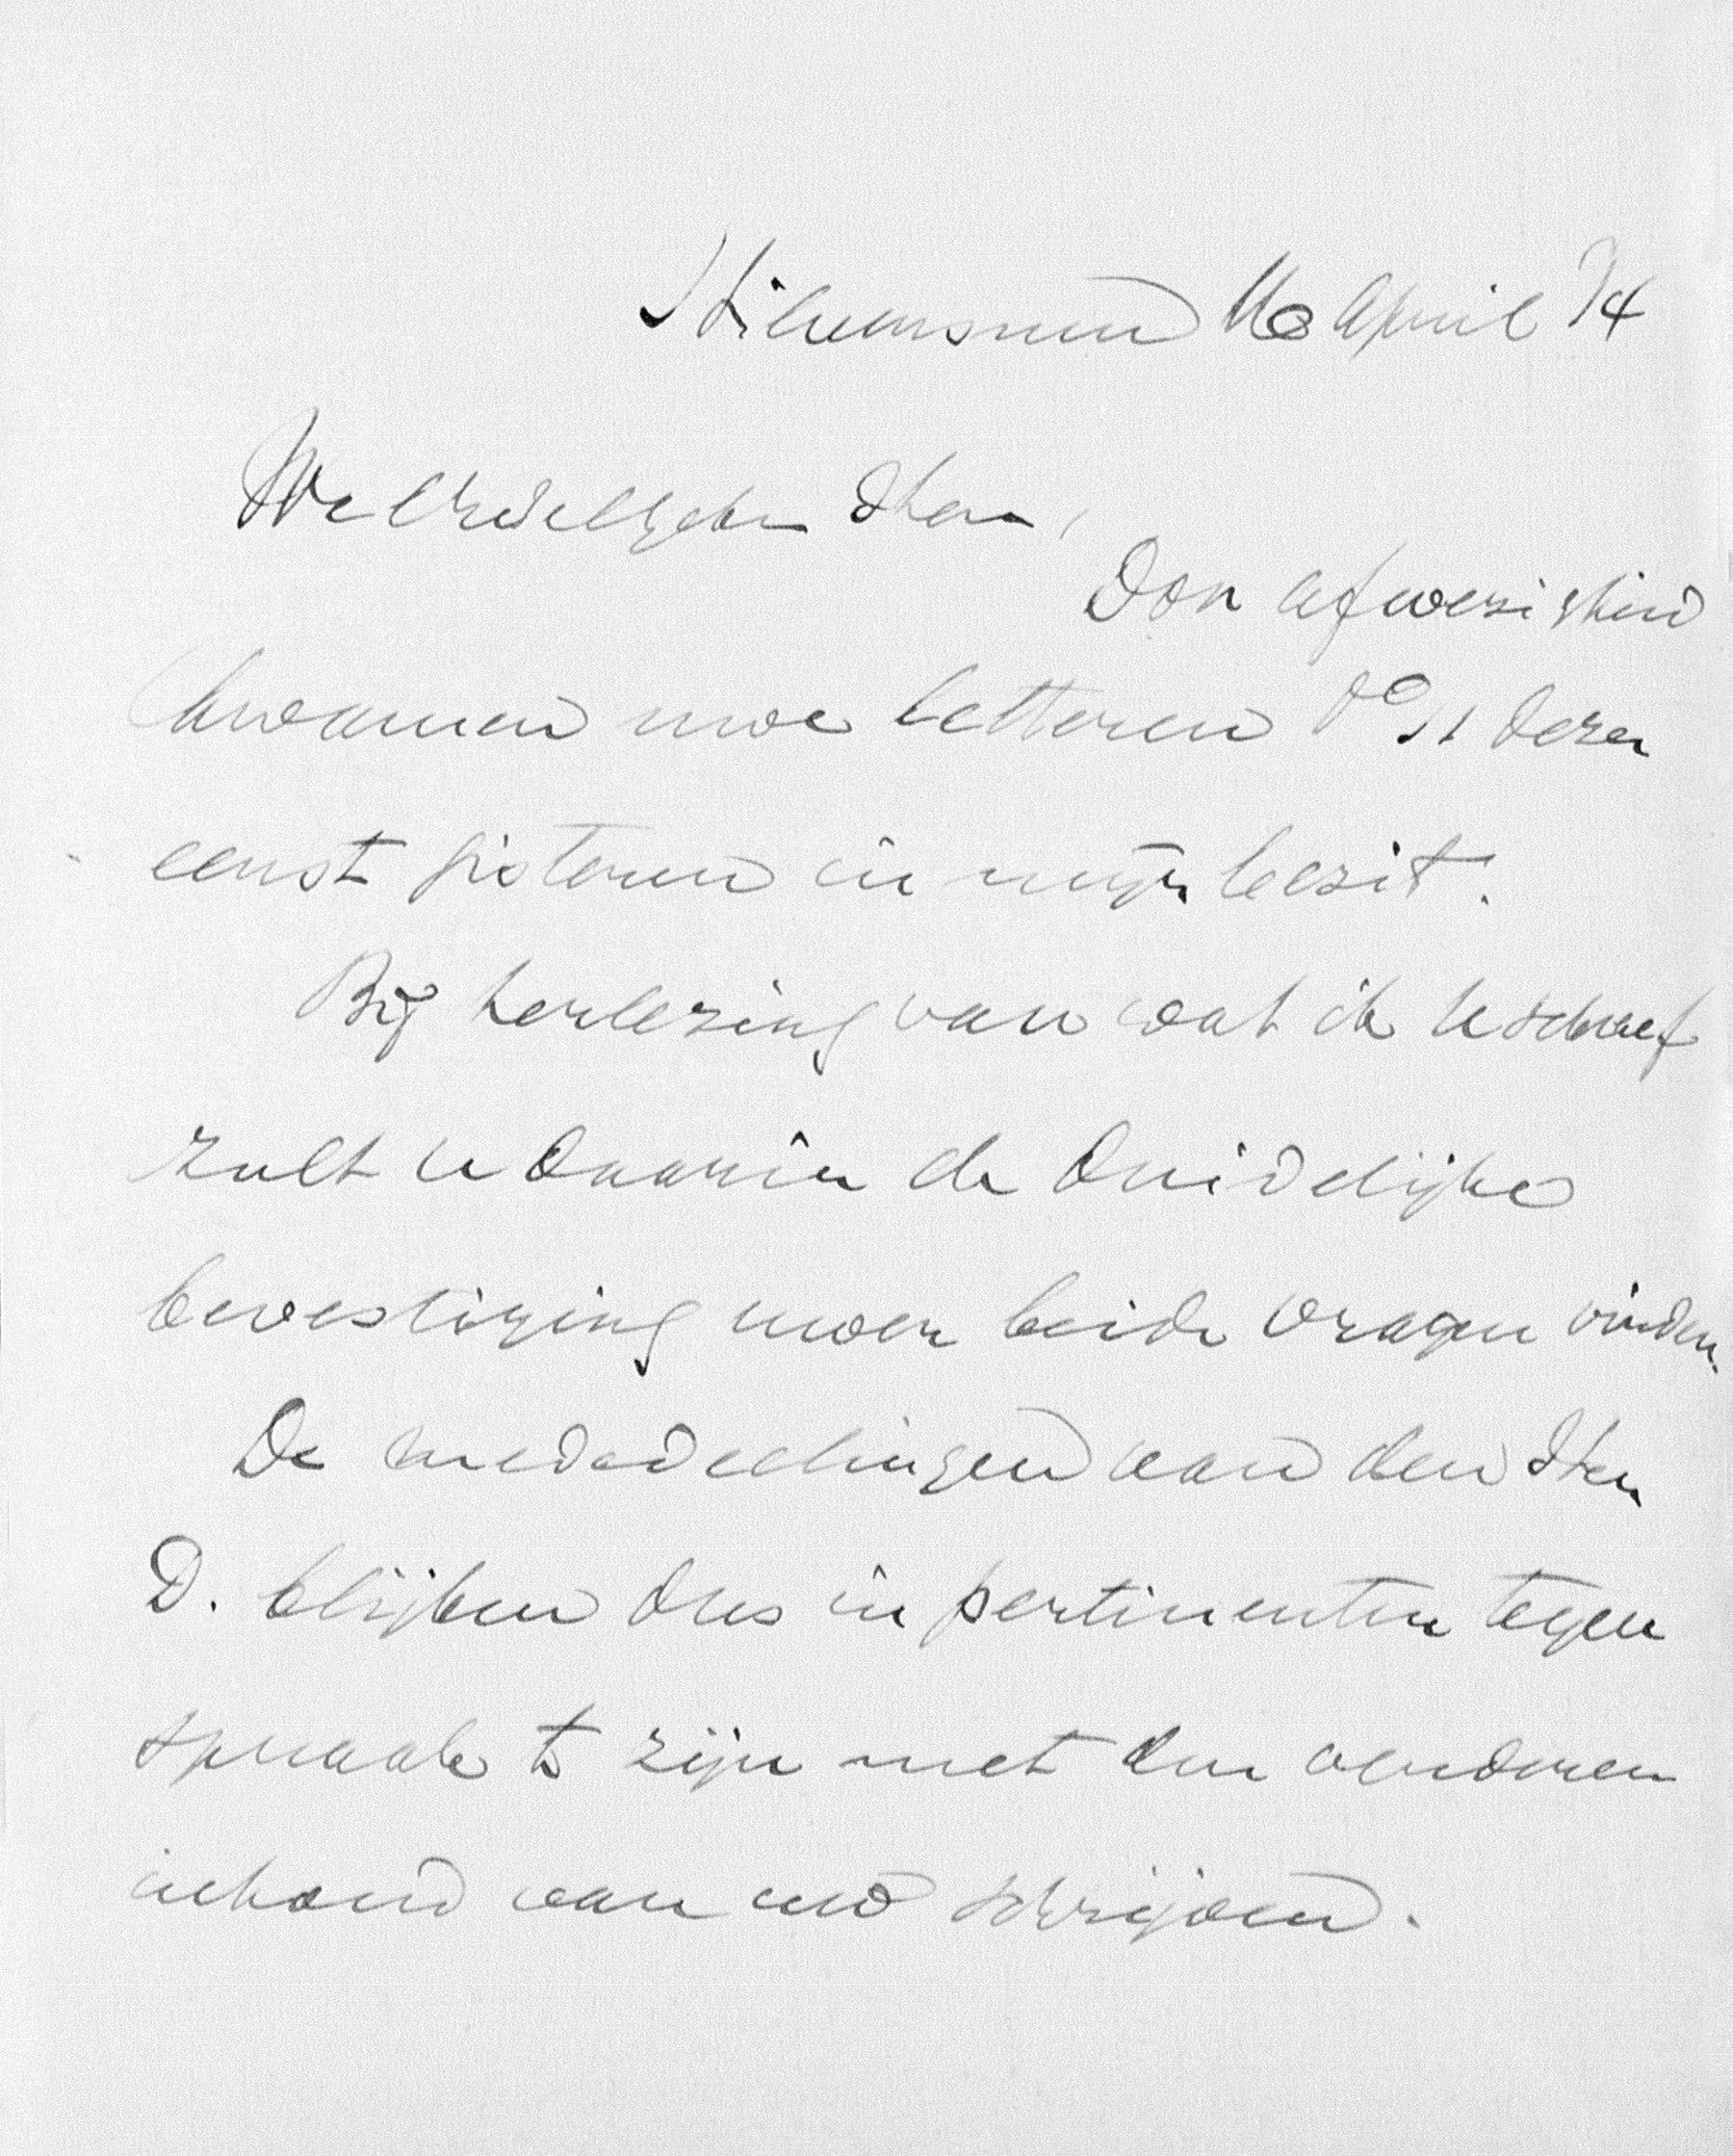 Hilversum 16 April 14
WelEdelgeb. Heer,
Door afwezigheid
kwamen uwe letteren dd 11 dezer
eerst gisteren in mijn bezit.
Bij herlezing van wat ik U schreef
zult U daarin de duidelijke
bevestiging uwer beide vragen vinden.
De mededeelingen van den Heer
D. blijken dus in pertinenten tegen
spraak te zijn met den verderen
inhoud van uw schrijven.